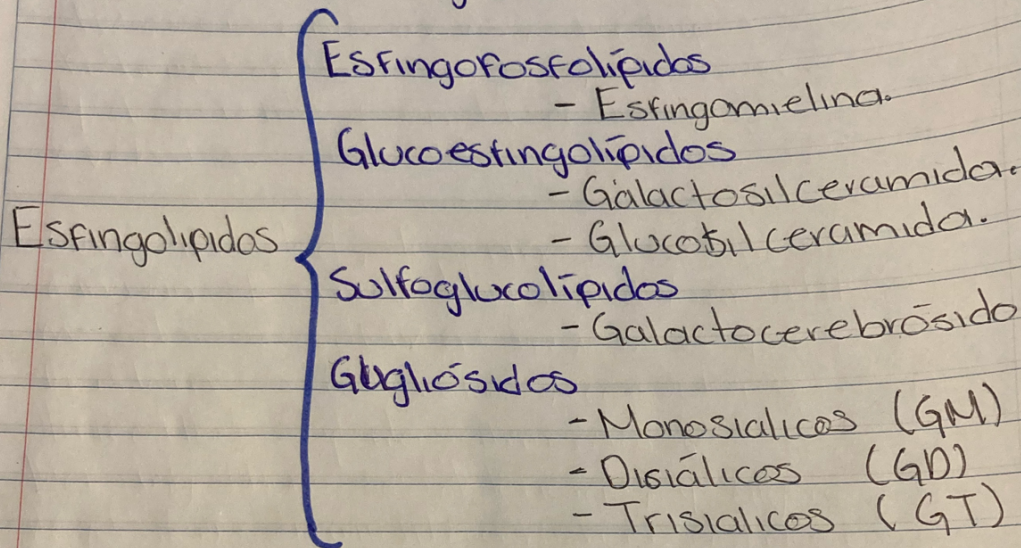 Esfingofosfolípidos
- Esfingomielina.
Glucoesfingolípidos
- Galactosilceramida.
- Glucosilceramida.
Esfingolipidos
Sulfoglucolípidos
- Galactocerebrósido
Gugliósidos
- Monosialicos (GM)
- Disiálicos (GD)
- Trisialicos (GT)